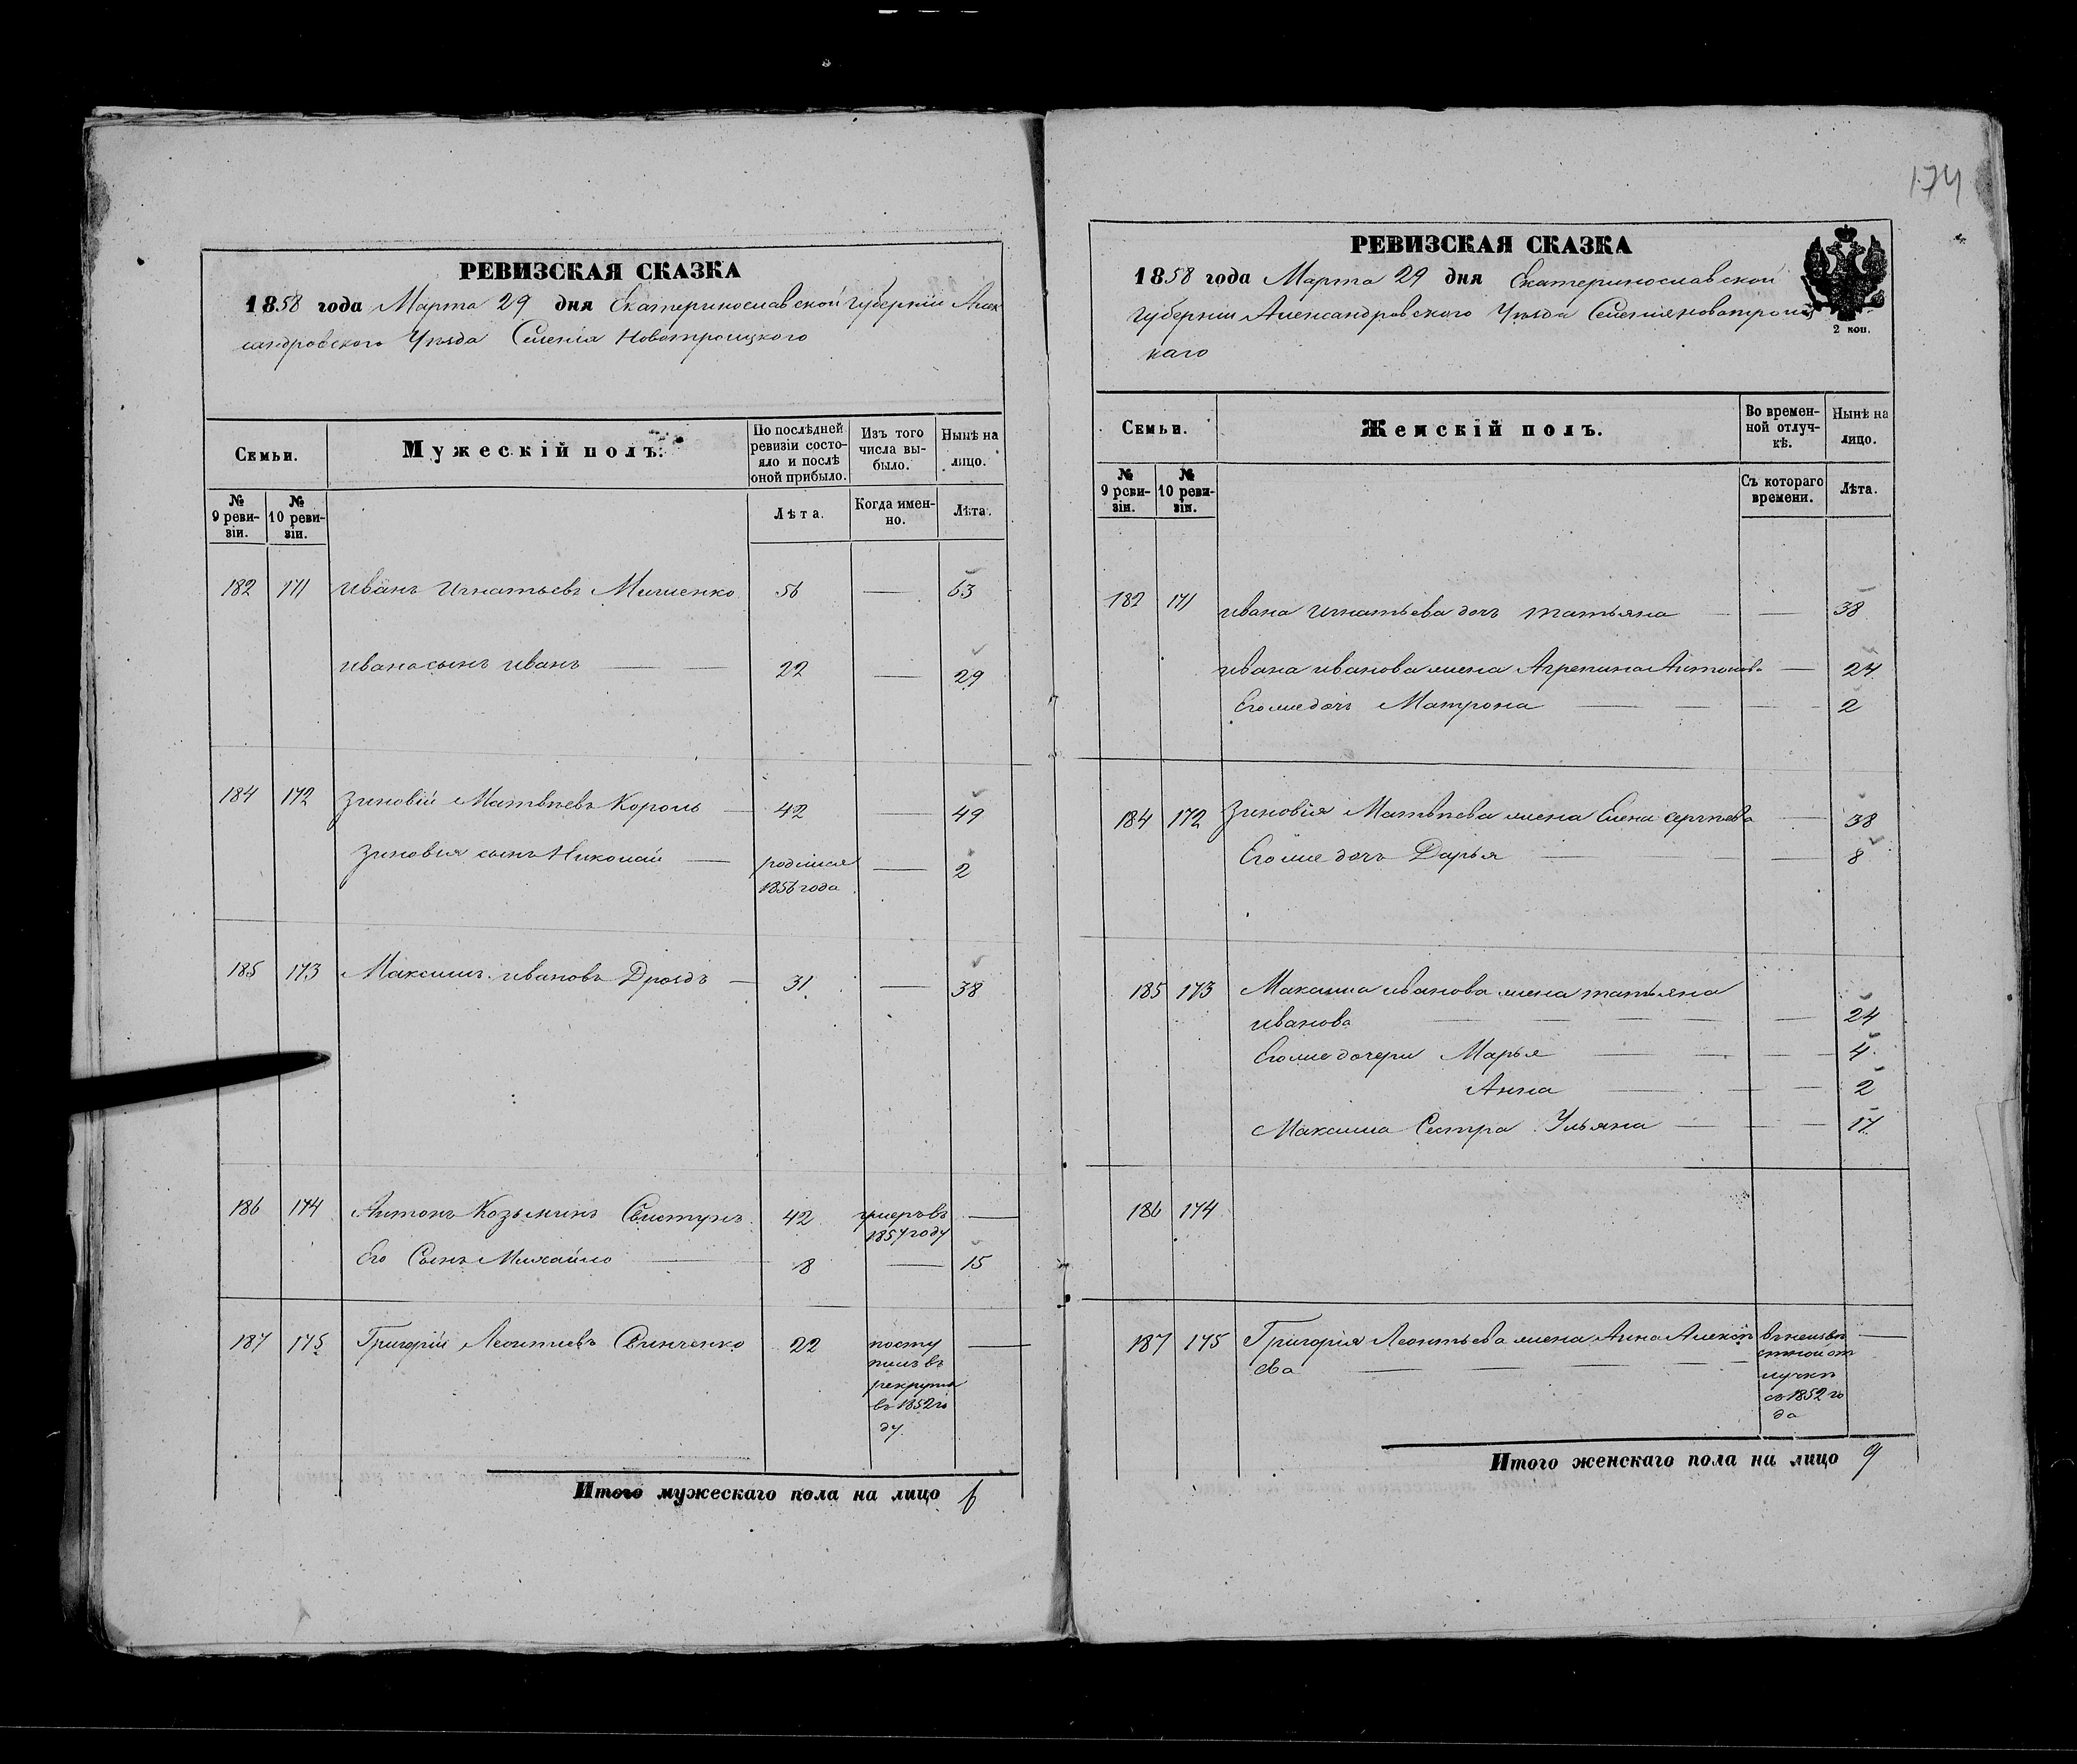 174
РЕВИЗСКАЯ СКАЗКА
1858 года Марта 29 дня Екатеринославской Губерніи Алек
сандровского Уѣзда Селенія Новотроицкого
Семьи.
Мужескій полъ:
По послѣдней
ревизіи состо-
яло и послѣ
оной прибыло.
Изъ того
числа вы-
было.
Нынѣ на
лицо.
№
9 реви-
зіи.
№
10 реви-
зіи.
Лѣта.
Когда имен-
но.
Лѣта.
182 171 Иванъ Игнатьевъ 56 — 63
Ивана сынъ Иванъ — — 22 — 29
184 172 Зиновій Матвѣевъ Король — 42 — 49
Зиновія сынъ Николай — родился — 2
1856 года
185 173 Максимъ Ивановъ Дроздъ — 31 — 38
186 174 Антонъ Козьминъ Свистунъ 42 умеръ въ —
1857 году
Его Сынъ Михайло — 8 — 15
187 175 Григорій Леонтиевъ Свинченко 22 посту —
пилъ въ
рекруты
въ 1852 го
ду
Итого мужескаго пола на лицо 6
РЕВИЗСКАЯ СКАЗКА
1858 года Марта 29 дня Екатеринославской
Губерніи Александровского Уѣзда Селения Новотроиц
каго
2 коп.
Семьи.
Женскій полъ.
Во времен-
ной отлуч-
кѣ.
Нынѣ на
лицо.
№
9 реви-
зіи.
№
10 реви-
зіи.
Съ котораго
времени.
Лѣта.
182 171 Ивана Игнатьева дочь татьяна — — 38
Ивана Иванова жена Агрепина Антонова — 24
Его же дочь Матрона — — — 2
184 172 Зиновія Матвѣева жена Елена Сергѣева — 38
Его же дочь Дарья — — — 8
185 173 Максима Иванова жена татьяна
Иванова — — — — — 24
Его же дочери Марья — — — 4
Анна — — — 2
Максима Сестра Ульяна — — — 17
186 174
187 175 Григория Леонтьева жена Анна Алексѣ въ неизвѣ —
ева — — — — стной от
лучкѣ
съ 1852 го
да
Итого женскаго пола на лицо 9